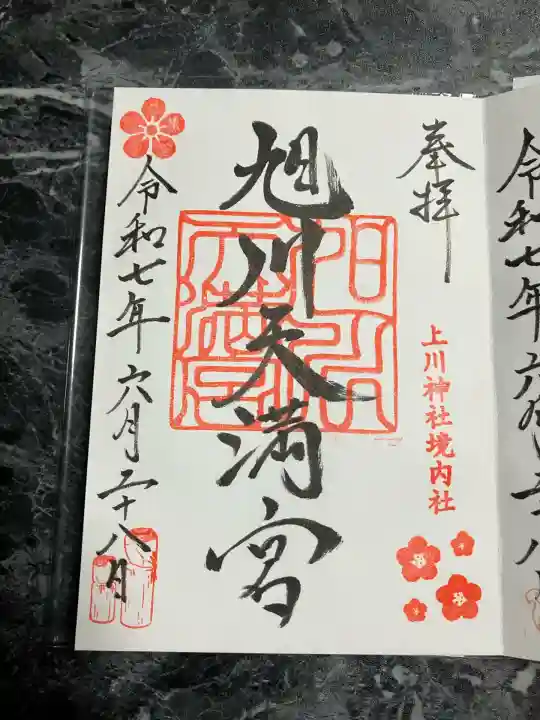 奉拝
上川神社境内社
旭川天満宮
令和七年六月二十八日
令和七年六月二十八